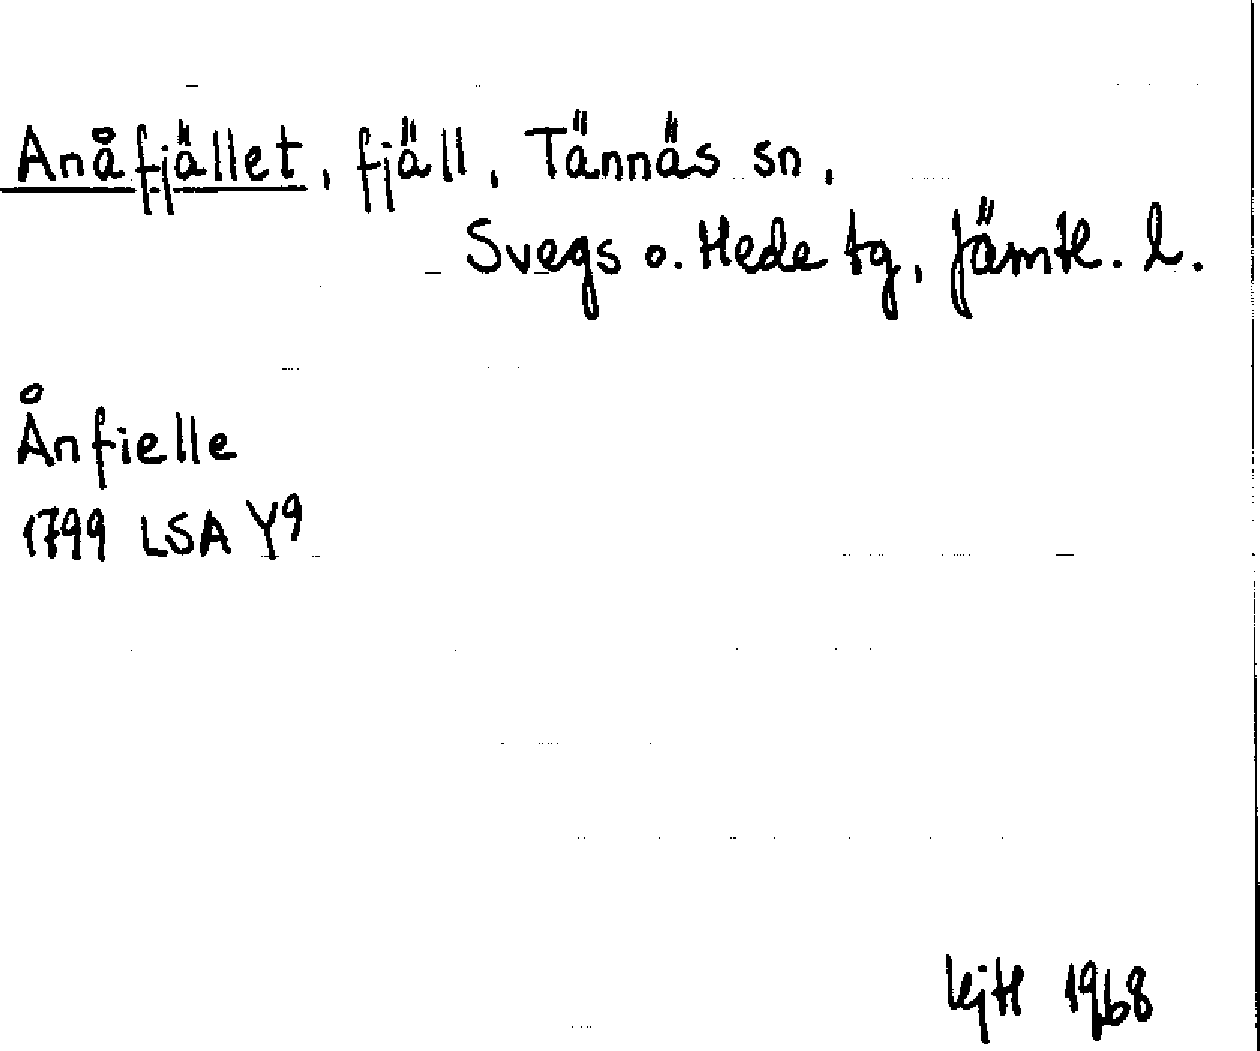 Anåfjället, fjäll, Tännäs sn,
Svegs o. Hede tg, Jämtl. l.
Ånfielle
1799 LSA Y9
KjH 1968